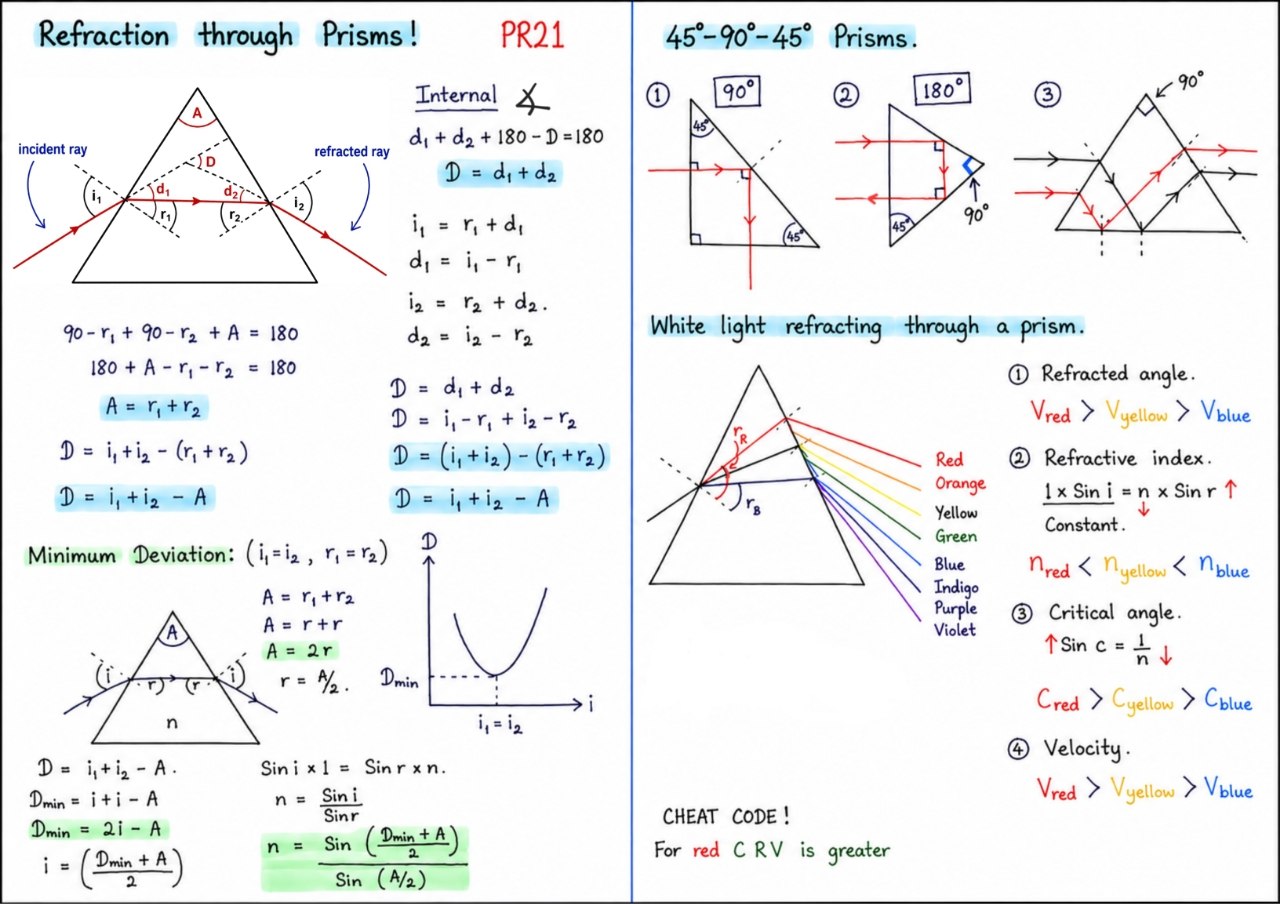 Refraction through Prisms!
PR21
A
D
incident ray
refracted ray
i₁
d₁
r₁
d₂
r₂
i₂
Internal ∡
d₁ + d₂ + 180 - D = 180
D = d₁ + d₂
i₁ = r₁ + d₁
d₁ = i₁ - r₁
i₂ = r₂ + d₂.
d₂ = i₂ - r₂
90 - r₁ + 90 - r₂ + A = 180
180 + A - r₁ - r₂ = 180
A = r₁ + r₂
D = i₁ + i₂ - (r₁ + r₂)
D = i₁ + i₂ - A
D = d₁ + d₂
D = i₁ - r₁ + i₂ - r₂
D = (i₁ + i₂) - (r₁ + r₂)
D = i₁ + i₂ - A
Minimum Deviation: (i₁ = i₂ , r₁ = r₂)
A
(i
r)
(r
i)
n
A = r₁ + r₂
A = r + r
A = 2r
r = A/2.
D
Dmin
i₁ = i₂
i
D = i₁ + i₂ - A.
Dmin = i + i - A
Dmin = 2i - A
i = (Dmin + A / 2)
Sin i × 1 = Sin r × n.
n = Sin i / Sin r
n = Sin (Dmin + A / 2) / Sin (A/2)
45°-90°-45° Prisms.
① 90°
45°
45°
② 180°
45°
90°
③ 90°
White light refracting through a prism.
rR
rB
Red
Orange
Yellow
Green
Blue
Indigo
Purple
Violet
① Refracted angle.
Vred > Vyellow > Vblue
② Refractive index.
1 × Sin i = n × Sin r ↑
↓
Constant.
nred < nyellow < nblue
③ Critical angle.
↑ Sin c = 1/n ↓
Cred > Cyellow > Cblue
④ Velocity.
Vred > Vyellow > Vblue
CHEAT CODE!
For red C R V is greater